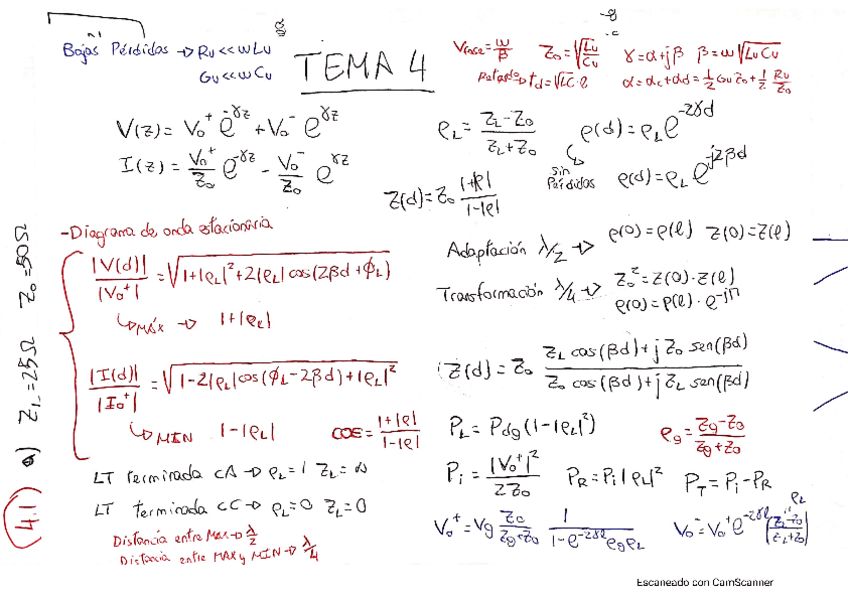 Bajas Pérdidas → Ru << ωLu
Gu << ωCu
TEMA 4
Vfase = ω/β Z₀ = √(Lu/Cu) γ = α + jβ β = ω√(LuCu)
Retardo → td = √(LC)·l α = αc + αd = 1/2 Gu Z₀ + 1/2 Ru/Z₀
V(z) = V₀⁺ e^(-γz) + V₀⁻ e^(γz)
I(z) = V₀⁺/Z₀ e^(-γz) - V₀⁻/Z₀ e^(γz)
ρL = (ZL - Z₀)/(ZL + Z₀) ρ(d) = ρL e^(-2γd)
sin Pérdidas ρ(d) = ρL e^(-j2βd)
Z(d) = Z₀ (1+|ρ|)/(1-|ρ|)
- Diagrama de onda estacionaria
|V(d)|/|V₀⁺| = √(1+|ρL|²+2|ρL|cos(2βd+ϕL))
↳ MÁX → 1+|ρL|
|I(d)|/|I₀⁺| = √(1-2|ρL|cos(ϕL-2βd)+|ρL|²)
↳ MIN 1-|ρL| COE = (1+|ρ|)/(1-|ρ|)
LT terminada CA → ρL = 1 ZL = ∞
LT terminada CC → ρL = 0 ZL = 0
Distancia entre Max → λ/2
Distancia entre MAX y MIN → λ/4
Adaptación λ/2 → ρ(0) = ρ(l) Z(0) = Z(l)
Transformación λ/4 → Z₀² = Z(0)·Z(l)
ρ(0) = ρ(l)·e^(-jπ)
Z(d) = Z₀ (ZL cos(βd) + j Z₀ sen(βd))/(Z₀ cos(βd) + j ZL sen(βd))
PL = Pdg (1-|ρL|²) ρg = (Zg - Z₀)/(Zg + Z₀)
Pi = |V₀⁺|²/2Z₀ PR = Pi |ρL|² PT = Pi - PR
V₀⁺ = Vg Z₀/(Zg+Z₀) 1/(1-e^(-2γl) ρg ρL) V₀⁻ = V₀⁺ e^(-2γl) [(ZL-Z₀)/(ZL+Z₀)]
ρL
4.1) a) ZL = 25Ω Z₀ = 50Ω
Escaneado con CamScanner